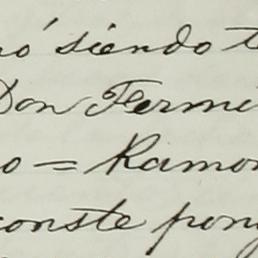 ó siendo t
Don Fermi
o = Ramon
conste pong